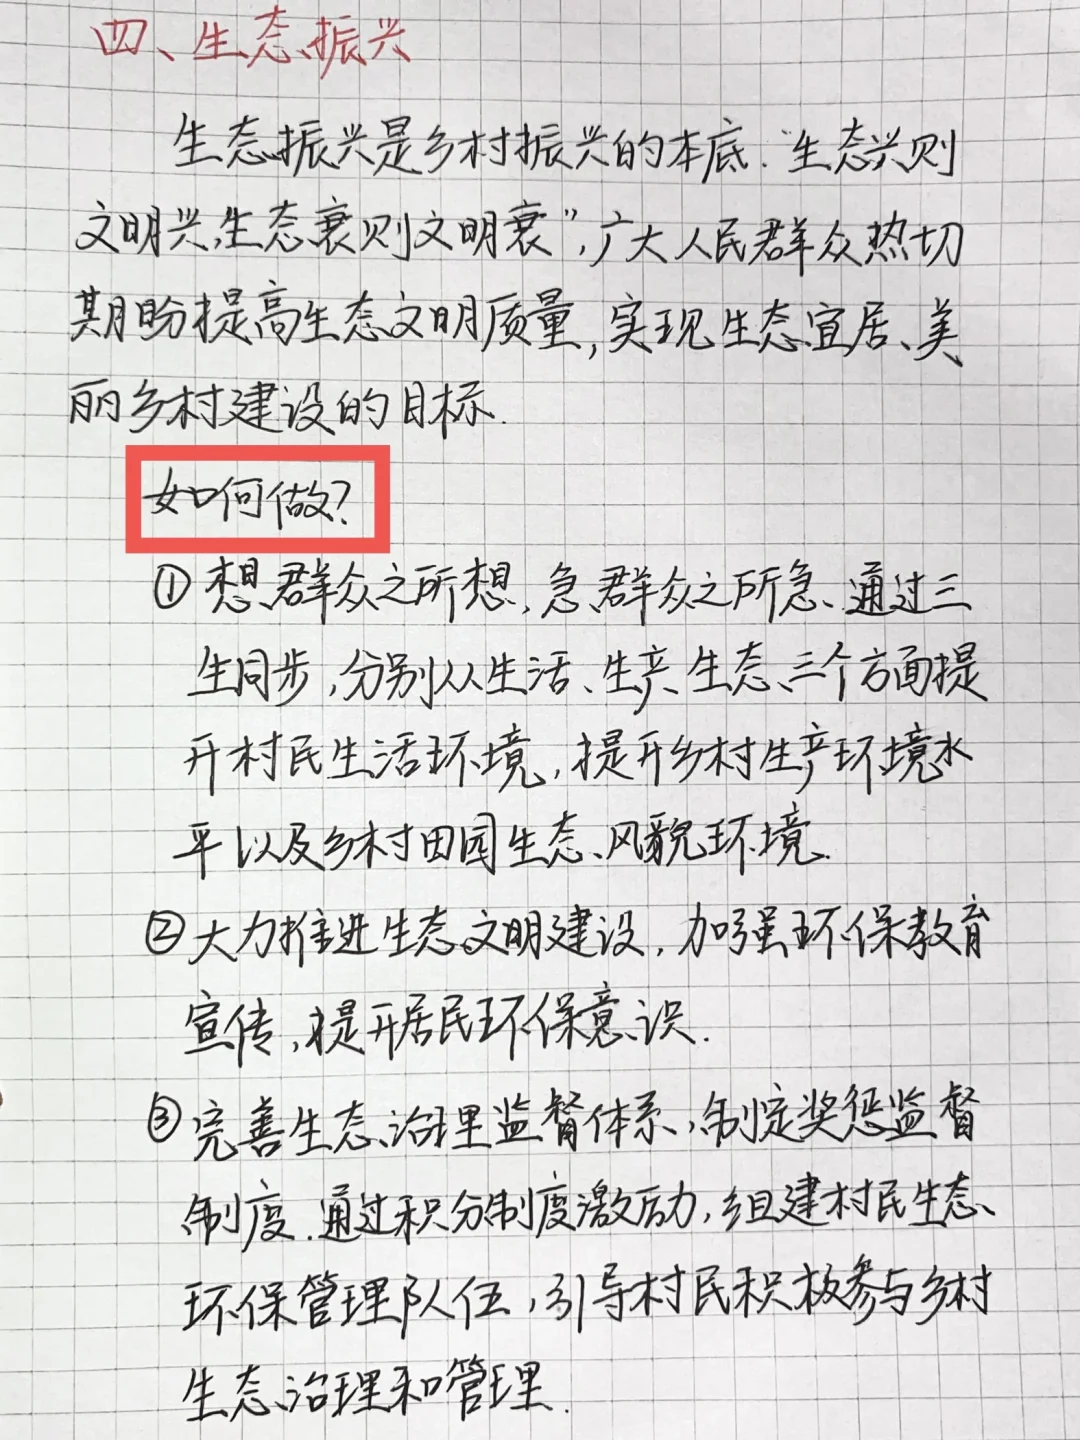 四、生态振兴
生态振兴是乡村振兴的本底.“生态兴则
文明兴,生态衰则文明衰”,广大人民群众热切
期盼提高生态文明质量,实现生态宜居、美
丽乡村建设的目标.
如何做?
①想群众之所想,急群众之所急、通过三
生同步,分别从生活、生产、生态三个方面提
升村民生活环境,提升乡村生产环境水
平以及乡村田园生态、风貌环境.
②大力推进生态文明建设,加强环保教育
宣传,提升居民环保意识.
③完善生态治理监督体系,制定奖惩监督
制度.通过积分制度激励,组建村民生态
环保管理队伍,引导村民积极参与乡村
生态治理和管理.